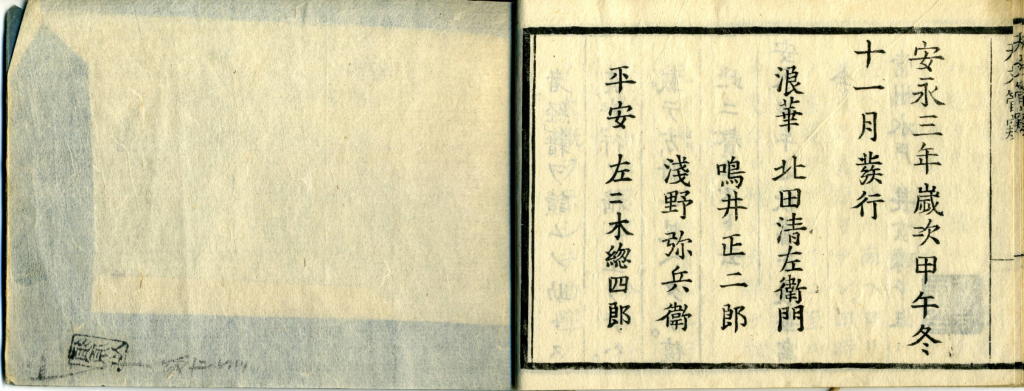 安永三年歳次甲午冬
十一月発行
浪華 北田清左衛門
鳴井正二郎
淺野弥兵衛
平安 左々木總四郎